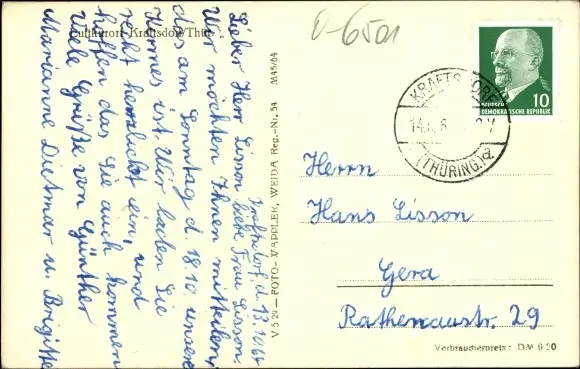 Luftkurort Kraftsdorf/Thür.
0-6501
Kraftsdorf d. 13.10.64
Lieber Herr Lisson, liebe Frau Lisson.
Wir möchten Ihnen mitteilen,
das am Sonntag d. 18.10. unsere
Kirmes ist. Wir laden Sie
recht herzlichst ein, und
hoffen das Sie auch kommen
Viele Grüße von Günther
Marianne Dietmar u. Brigitte
V 5 29 — FOTO-WAPPLER, WEIDA Reg.-Nr. 54 M 45/64
KRAFTSDORF
(THÜRING.)
10
DEUTSCHE DEMOKRATISCHE REPUBLIK
Herrn
Hans Lisson
Gera
Rathenaustr. 29
Verbraucherpreis: DM 0.20